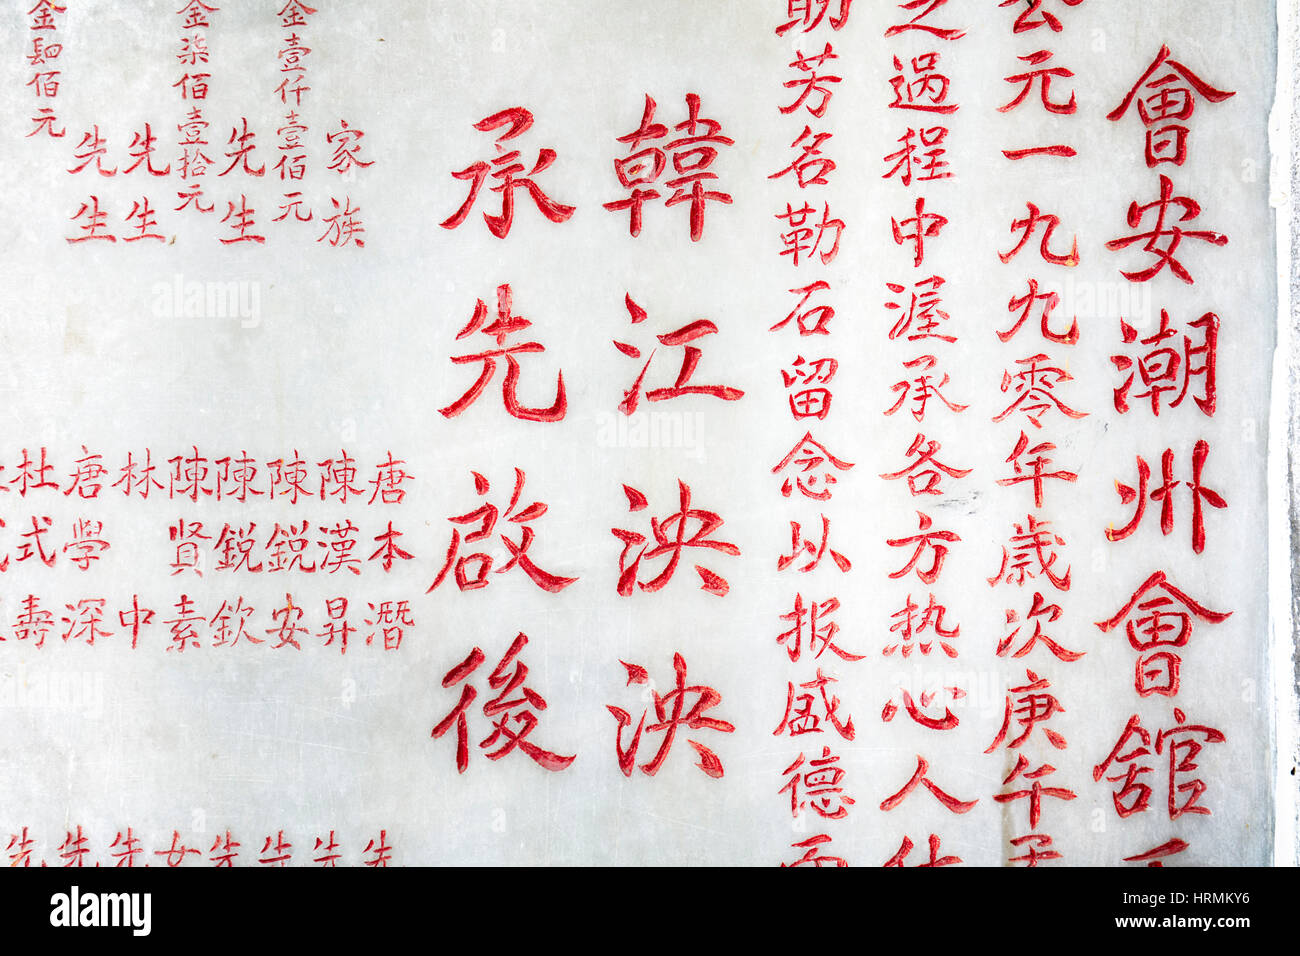 會安潮州會舘
公元一九九零年歲次庚午
之過程中渥承各方热心人
助芳名勒石留念以报盛德
韓江泱泱
承先啟後
唐本潛 先
家族 陳漢昇 先
金壹仟壹佰元 陳銳安 先
先生 陳銳欽 先
金柒佰壹拾元 陳賢素 女
先生 林中 先
先生 唐學深 先
金肆佰元 杜式壽 先
alamy
Image ID: HRMKY6
www.alamy.com